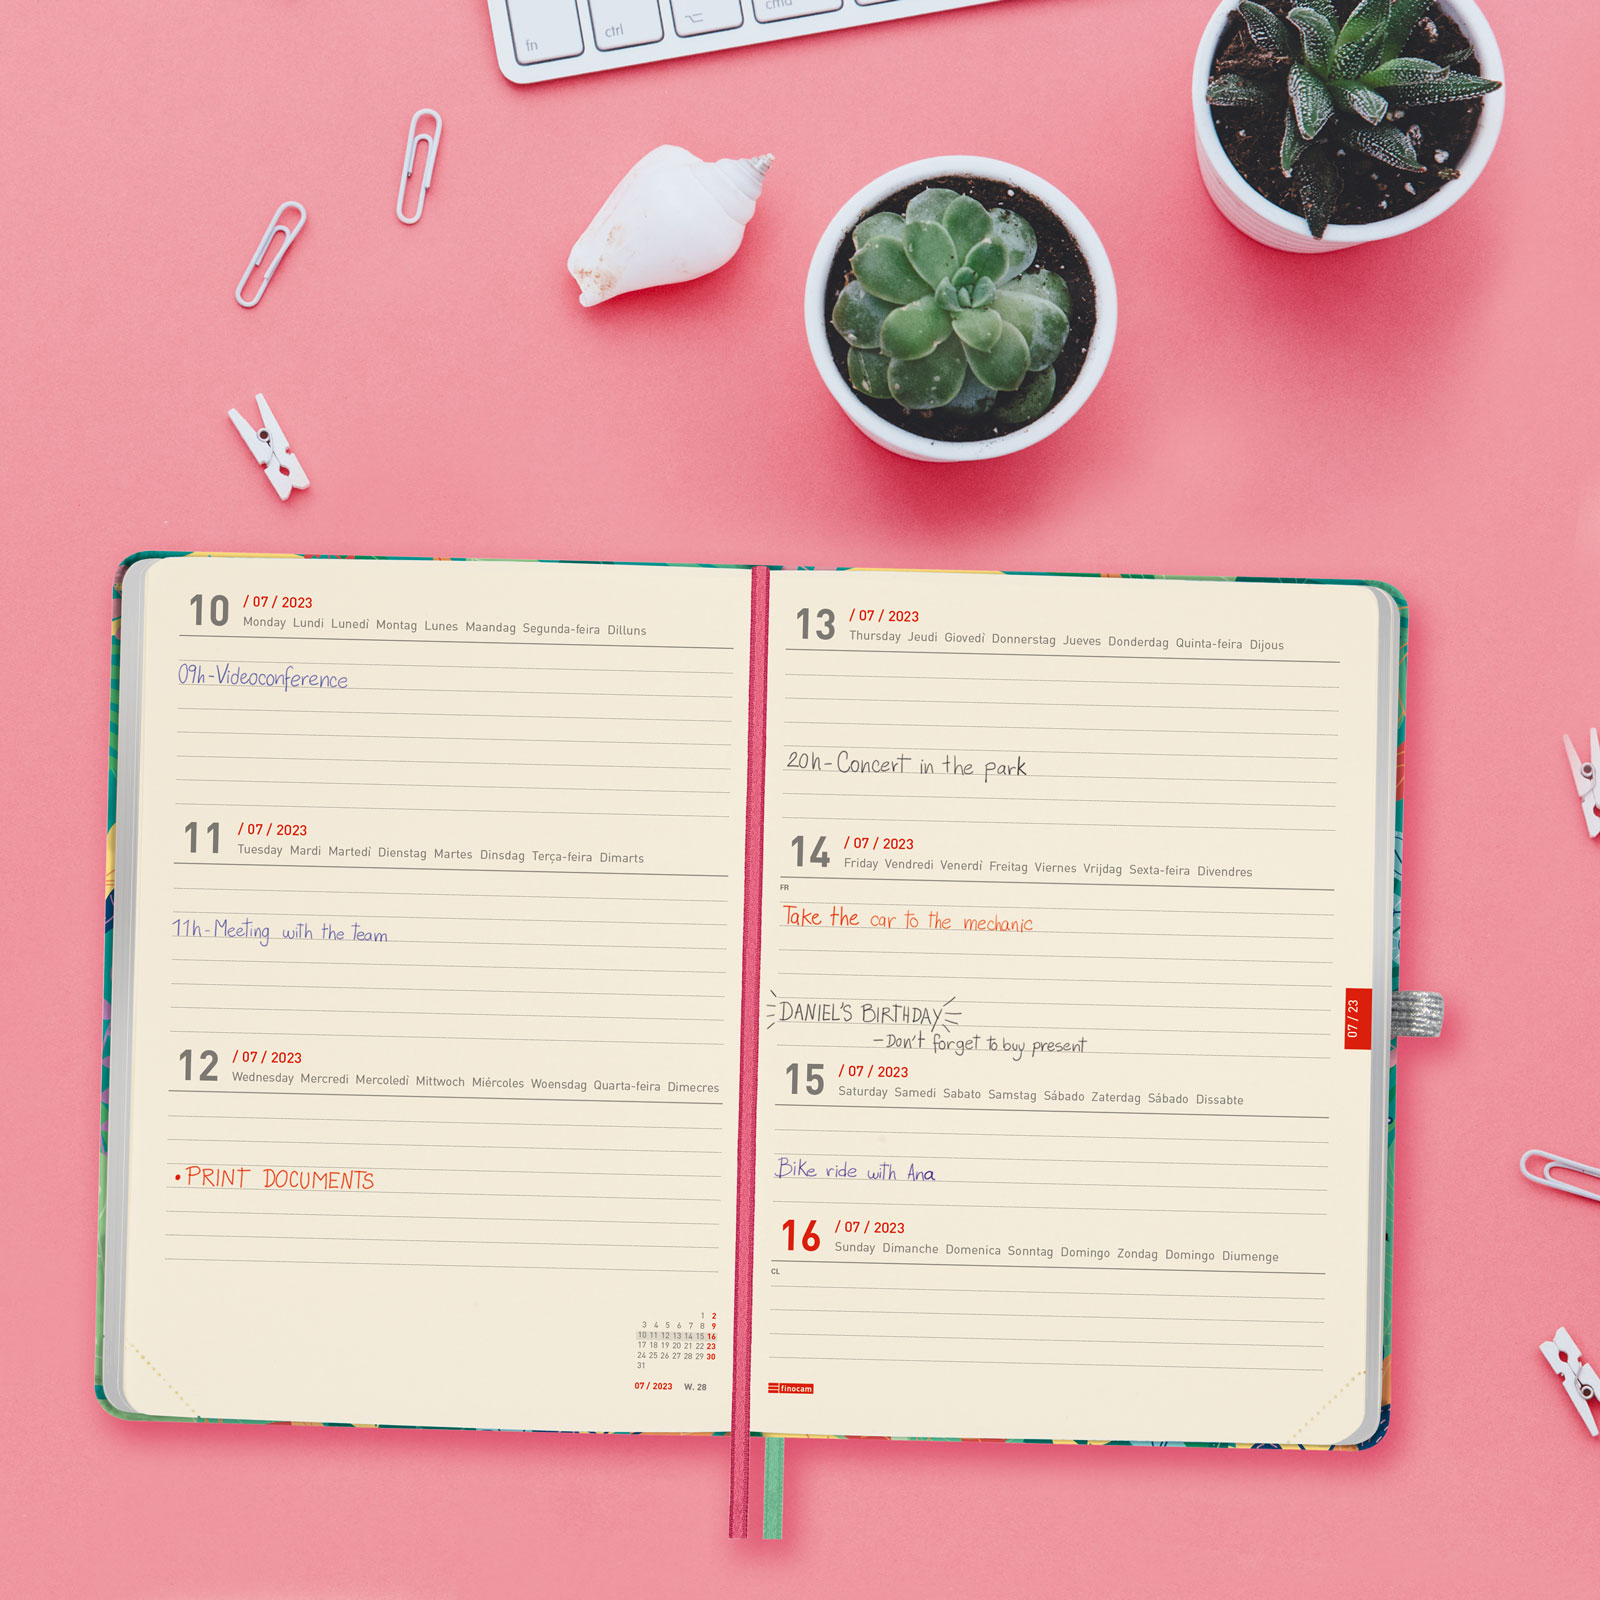 fn ctrl cmd
10 / 07 / 2023
Monday Lundi Lunedì Montag Lunes Maandag Segunda-feira Dilluns
09h-Videoconference
11 / 07 / 2023
Tuesday Mardi Martedì Dienstag Martes Dinsdag Terça-feira Dimarts
11h-Meeting with the team
12 / 07 / 2023
Wednesday Mercredi Mercoledì Mittwoch Miércoles Woensdag Quarta-feira Dimecres
• PRINT DOCUMENTS
1 2
3 4 5 6 7 8 9
10 11 12 13 14 15 16
17 18 19 20 21 22 23
24 25 26 27 28 29 30
31
07 / 2023 W. 28
13 / 07 / 2023
Thursday Jeudi Giovedì Donnerstag Jueves Donderdag Quinta-feira Dijous
20h-Concert in the park
14 / 07 / 2023
Friday Vendredi Venerdì Freitag Viernes Vrijdag Sexta-feira Divendres
FR
Take the car to the mechanic
DANIEL'S BIRTHDAY
-Don't forget to buy present
07 / 23
15 / 07 / 2023
Saturday Samedi Sabato Samstag Sábado Zaterdag Sábado Dissabte
Bike ride with Ana
16 / 07 / 2023
Sunday Dimanche Domenica Sonntag Domingo Zondag Domingo Diumenge
CL
finocam